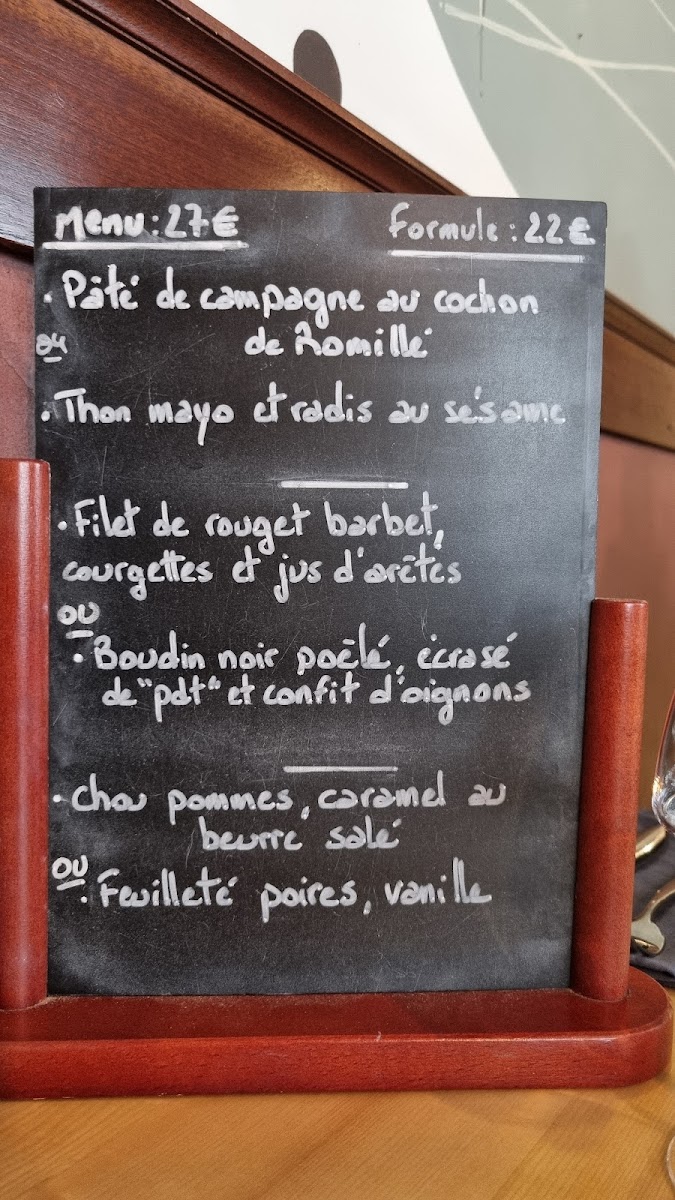 Menu : 27€
Formule : 22€
• Pâté de campagne au cochon
ou
de Romillé
• Thon mayo et radis au sésame
• Filet de rouget barbet,
courgettes et jus d'arêtes
ou
• Boudin noir poêlé, écrasé
de "pdt" et confit d'oignons
• Chou pommes, caramel au
beurre salé
ou
• Feuilleté poires, vanille